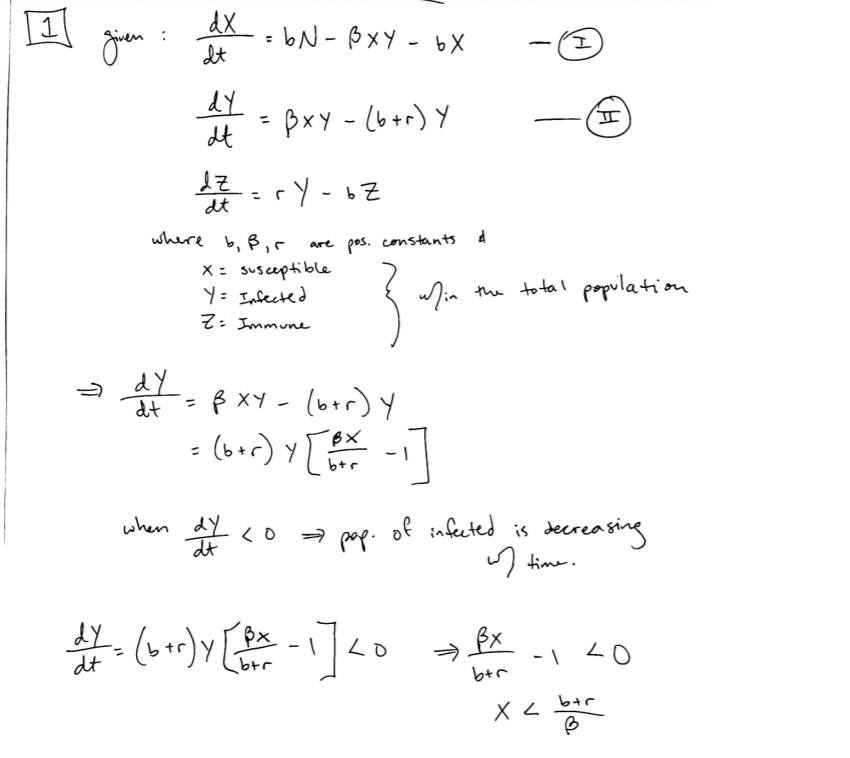 [1] given : dX/dt = bN - βXY - bX — (I)
dY/dt = βXY - (b+r) Y — (II)
dZ/dt = rY - bZ
where b, β, r are pos. constants &
X = susceptible
Y = Infected } w/in the total population
Z = Immune
⇒ dY/dt = β XY - (b+r) Y
= (b+r) Y [βX/b+r - 1]
when dY/dt < 0 ⇒ pop. of infected is decreasing
w/ time.
dY/dt = (b+r) Y [βX/b+r - 1] < 0 ⇒ βX/b+r - 1 < 0
X < b+r/β